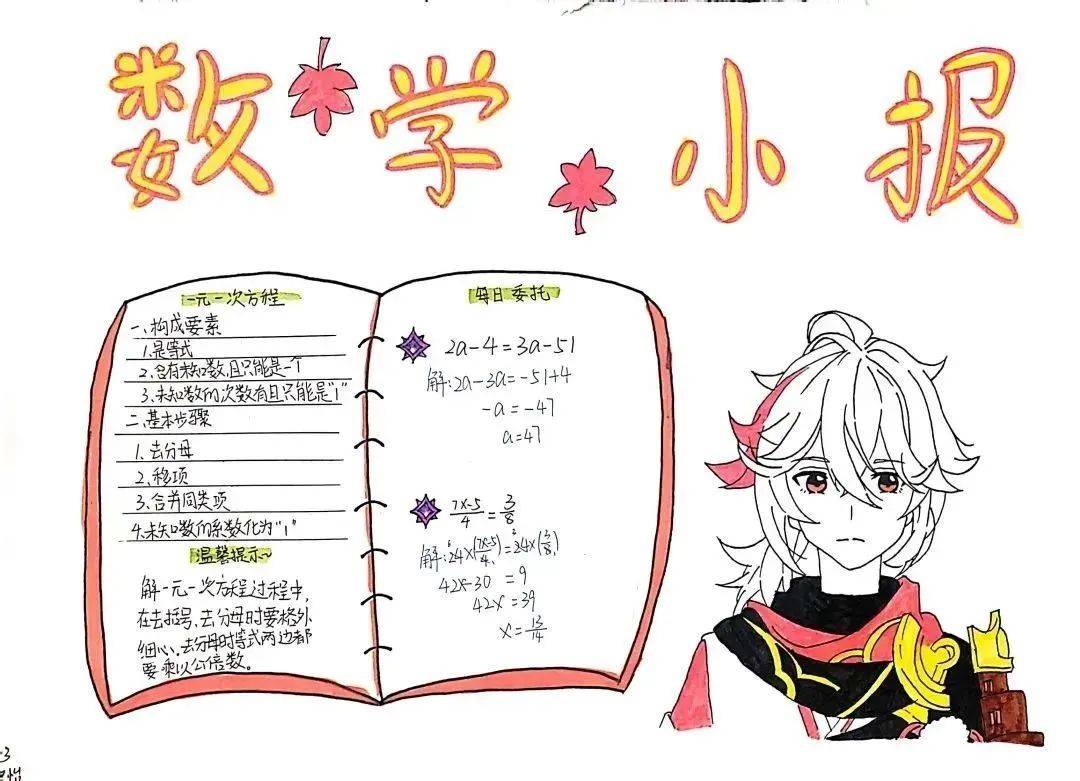 数学小报
一元一次方程
一、构成要素
1.是等式
2.含有未知数,且只能是一个
3.未知数的次数有且只能是"1"
二、基本步骤
1.去分母
2.移项
3.合并同类项
4.未知数的系数化为"1"
温馨提示~
解一元一次方程过程中,
在去括号、去分母时要格外
细心,去分母时等式两边都
要乘以公倍数。
每日委托
2a-4=3a-51
解:2a-3a=-51+4
-a=-47
a=47
7x-5/4=3/8
解:24×(7x-5/4)=24×(3/8)
42x-30=9
42x=39
x=13/14